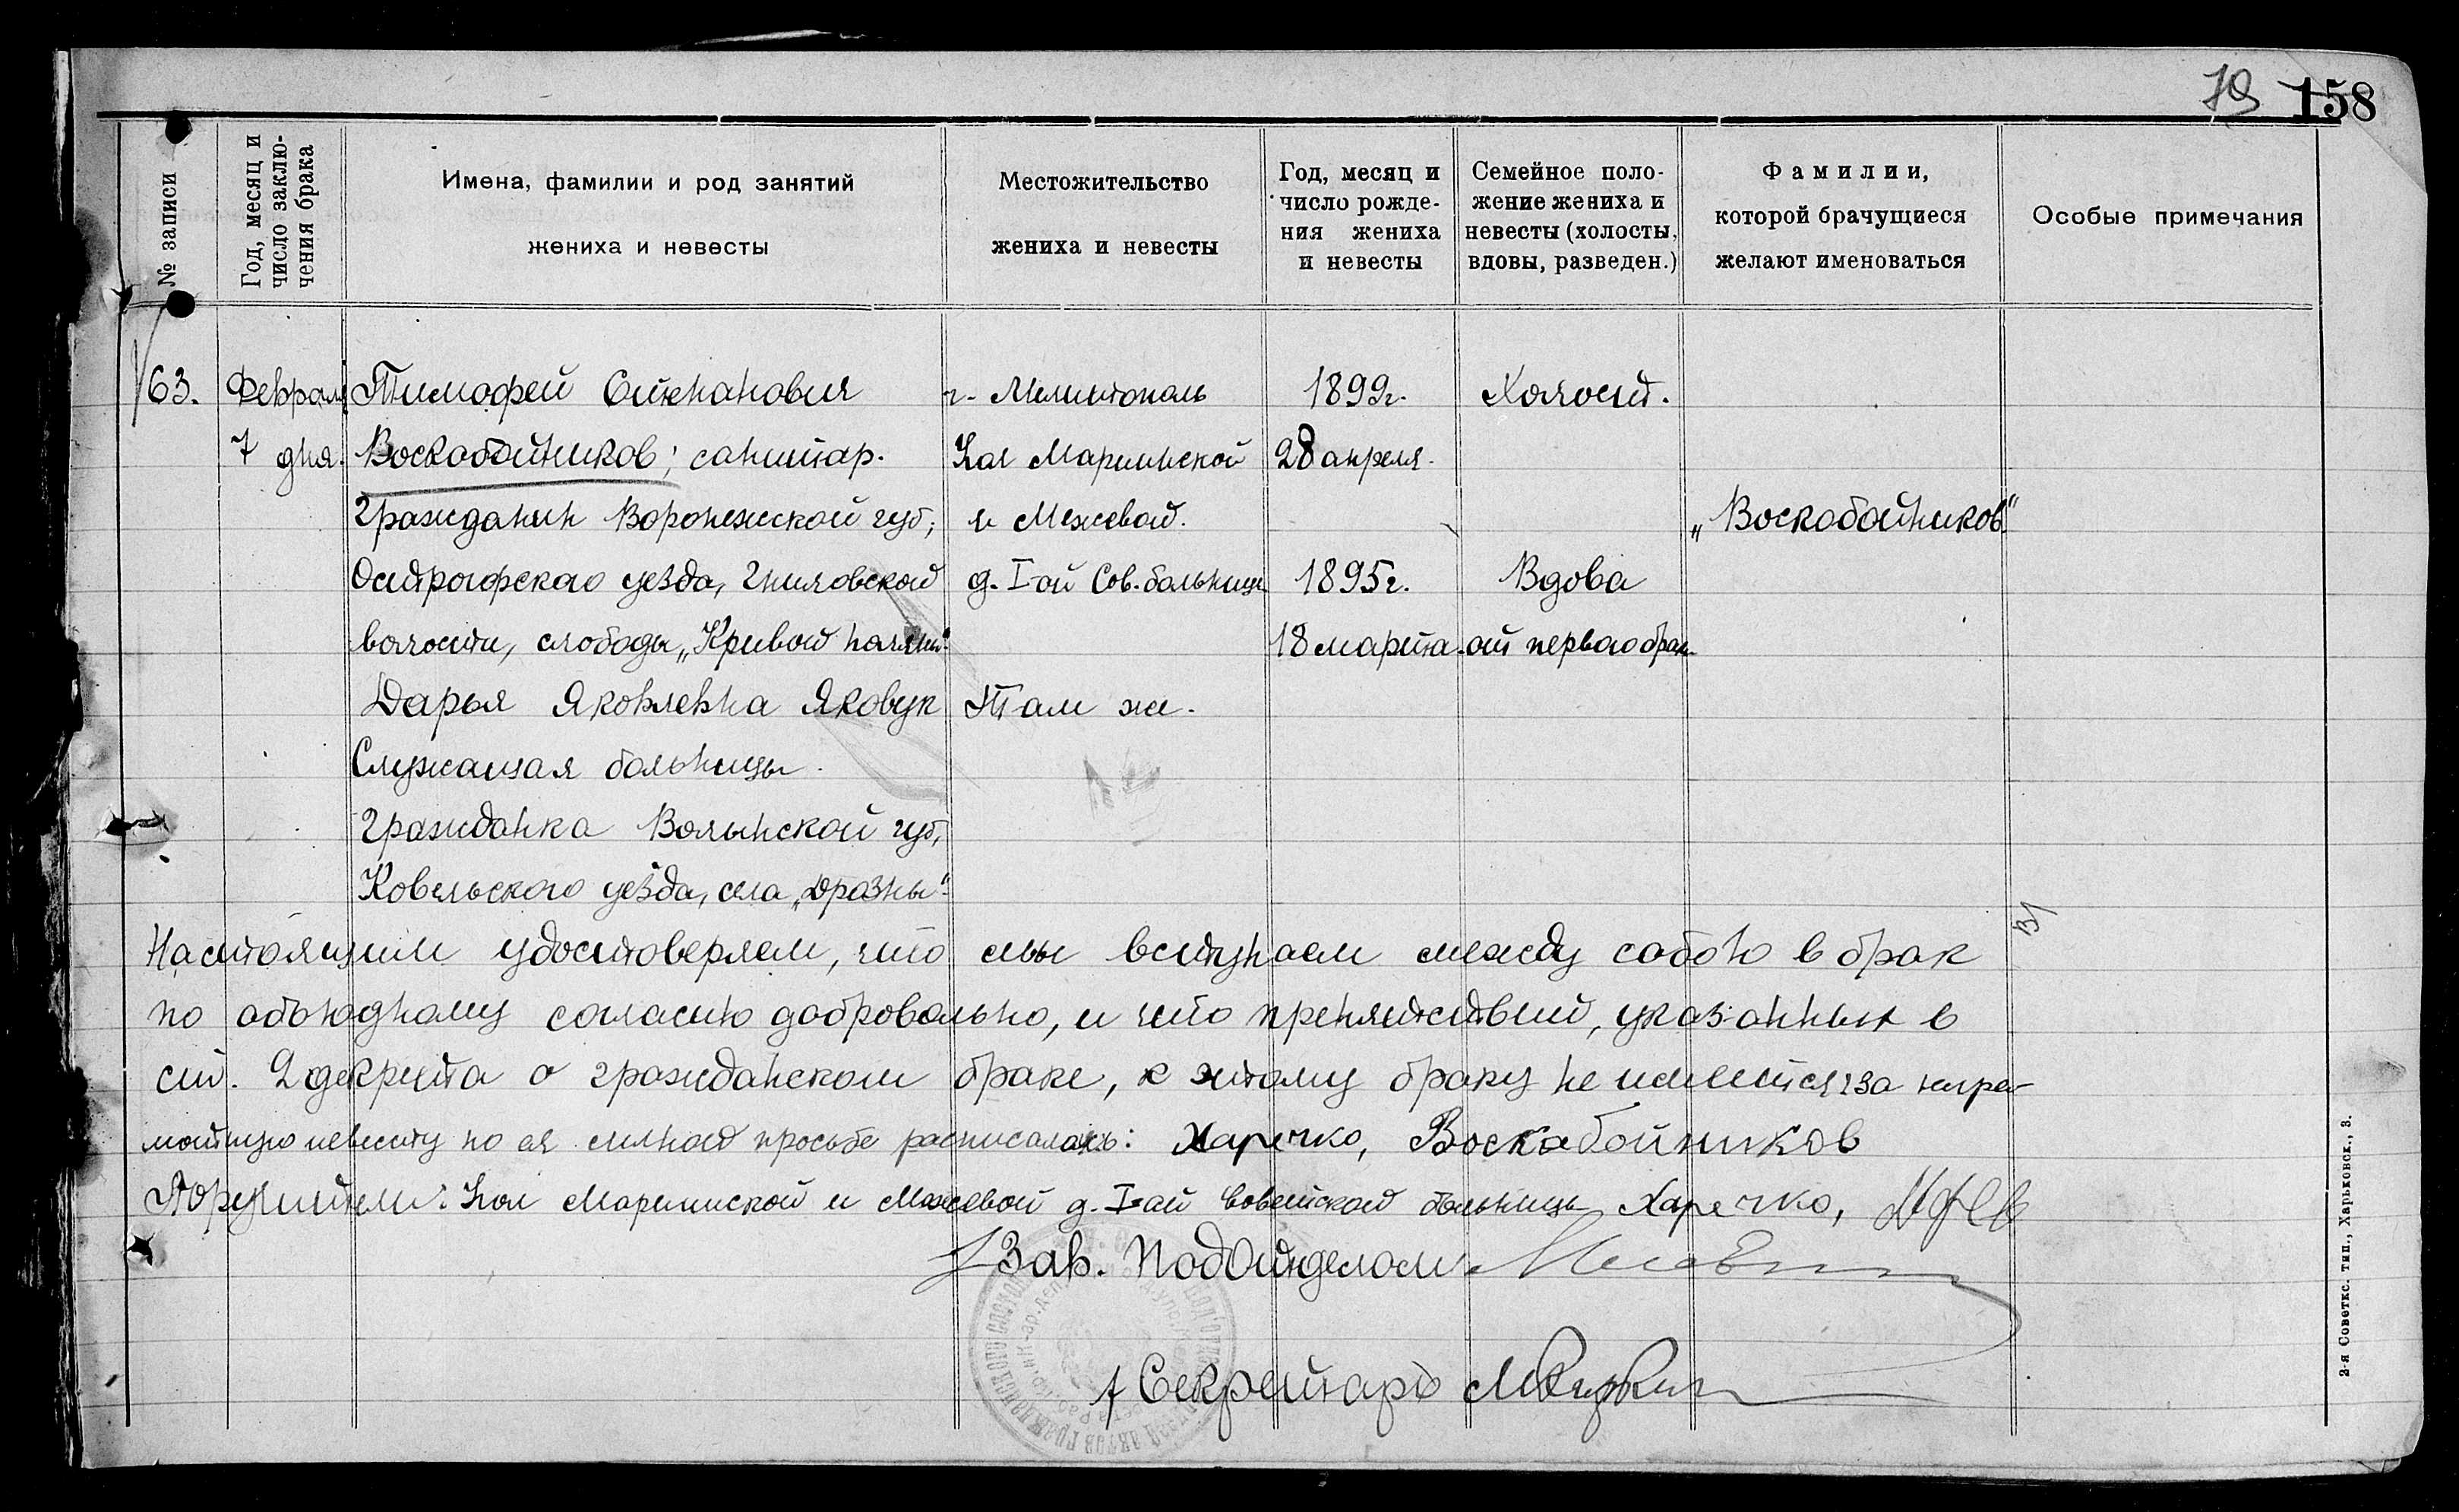 79 158
№ записи
Год, месяц и
число заклю-
чения брака
Имена, фамилии и род занятий
жениха и невесты
Местожительство
жениха и невесты
Год, месяц и
число рожде-
ния жениха
и невесты
Семейное поло-
жение жениха и
невесты (холосты,
вдовы, разведен.)
Фамилии,
которой брачущиеся
желают именоваться
Особые примечания
63. Феврал Тимофей Степанович г. Мелитополь 1899г. Холост.
7 дня. Воскобойников; санитар. Кол Мариинской 28 апреля.
Гражданин Воронежской губ; и Межевой. „Воскобойников"
Острогорского уезда, Гниловской д. I-ой Сов. больницы 1895г. Вдова
волости, слободы „Кривой 18 марта. от первого брак.
Дарья Яковлевна Яковук Там же.
Служащая больницы.
Гражданка Волынской губ,
Ковельского уезда, села „Дрозны"
Настоящим удостоверяем, что мы вступаем между собою в брак
по обоюдному согласию добровольно, и что препятствий, указанных в
ст. 2 декрета о гражданском браке, к этому браку не имеется: за негра-
мотную невесту по ея личной просьбе расписалась: Харечко, Воскабойников
Поручители: Кол Мариинской и Межевой д. I-ай Советской больницы Харечко,
Зав. ПодОтделом
Секретарь
2-я Советск. тип., Харьковск., 3.